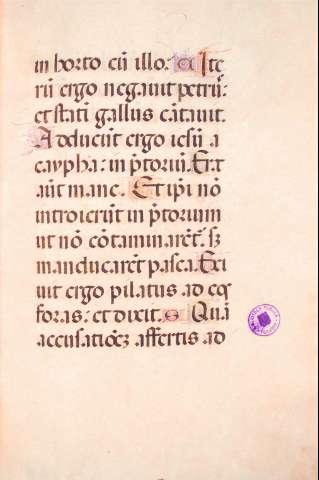 in horto cū illo. C Ite
rū ergo negauit petrꝰ:
et stati gallus cātauit.
Adducūt ergo iesū a
caypha: in p̄toriū. Erat
aūt mane. Et ip̄i nō
introierūt in p̄torium
ut nō cōtaminarēt᷑. sꝫ
manducarēt pasca. Exi
uit ergo pilatus ad eos
foras: et dixit. S Quā
accusationē affertis ad